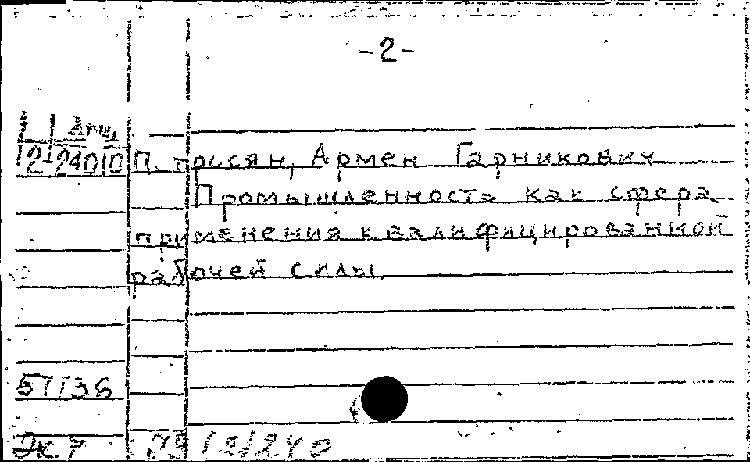 -2-
Дис
12 24010 П тросян, Армен Гарникович
Промышленность как сфера
применения квалифицированной
рабочей силы.
51136
Эк 7